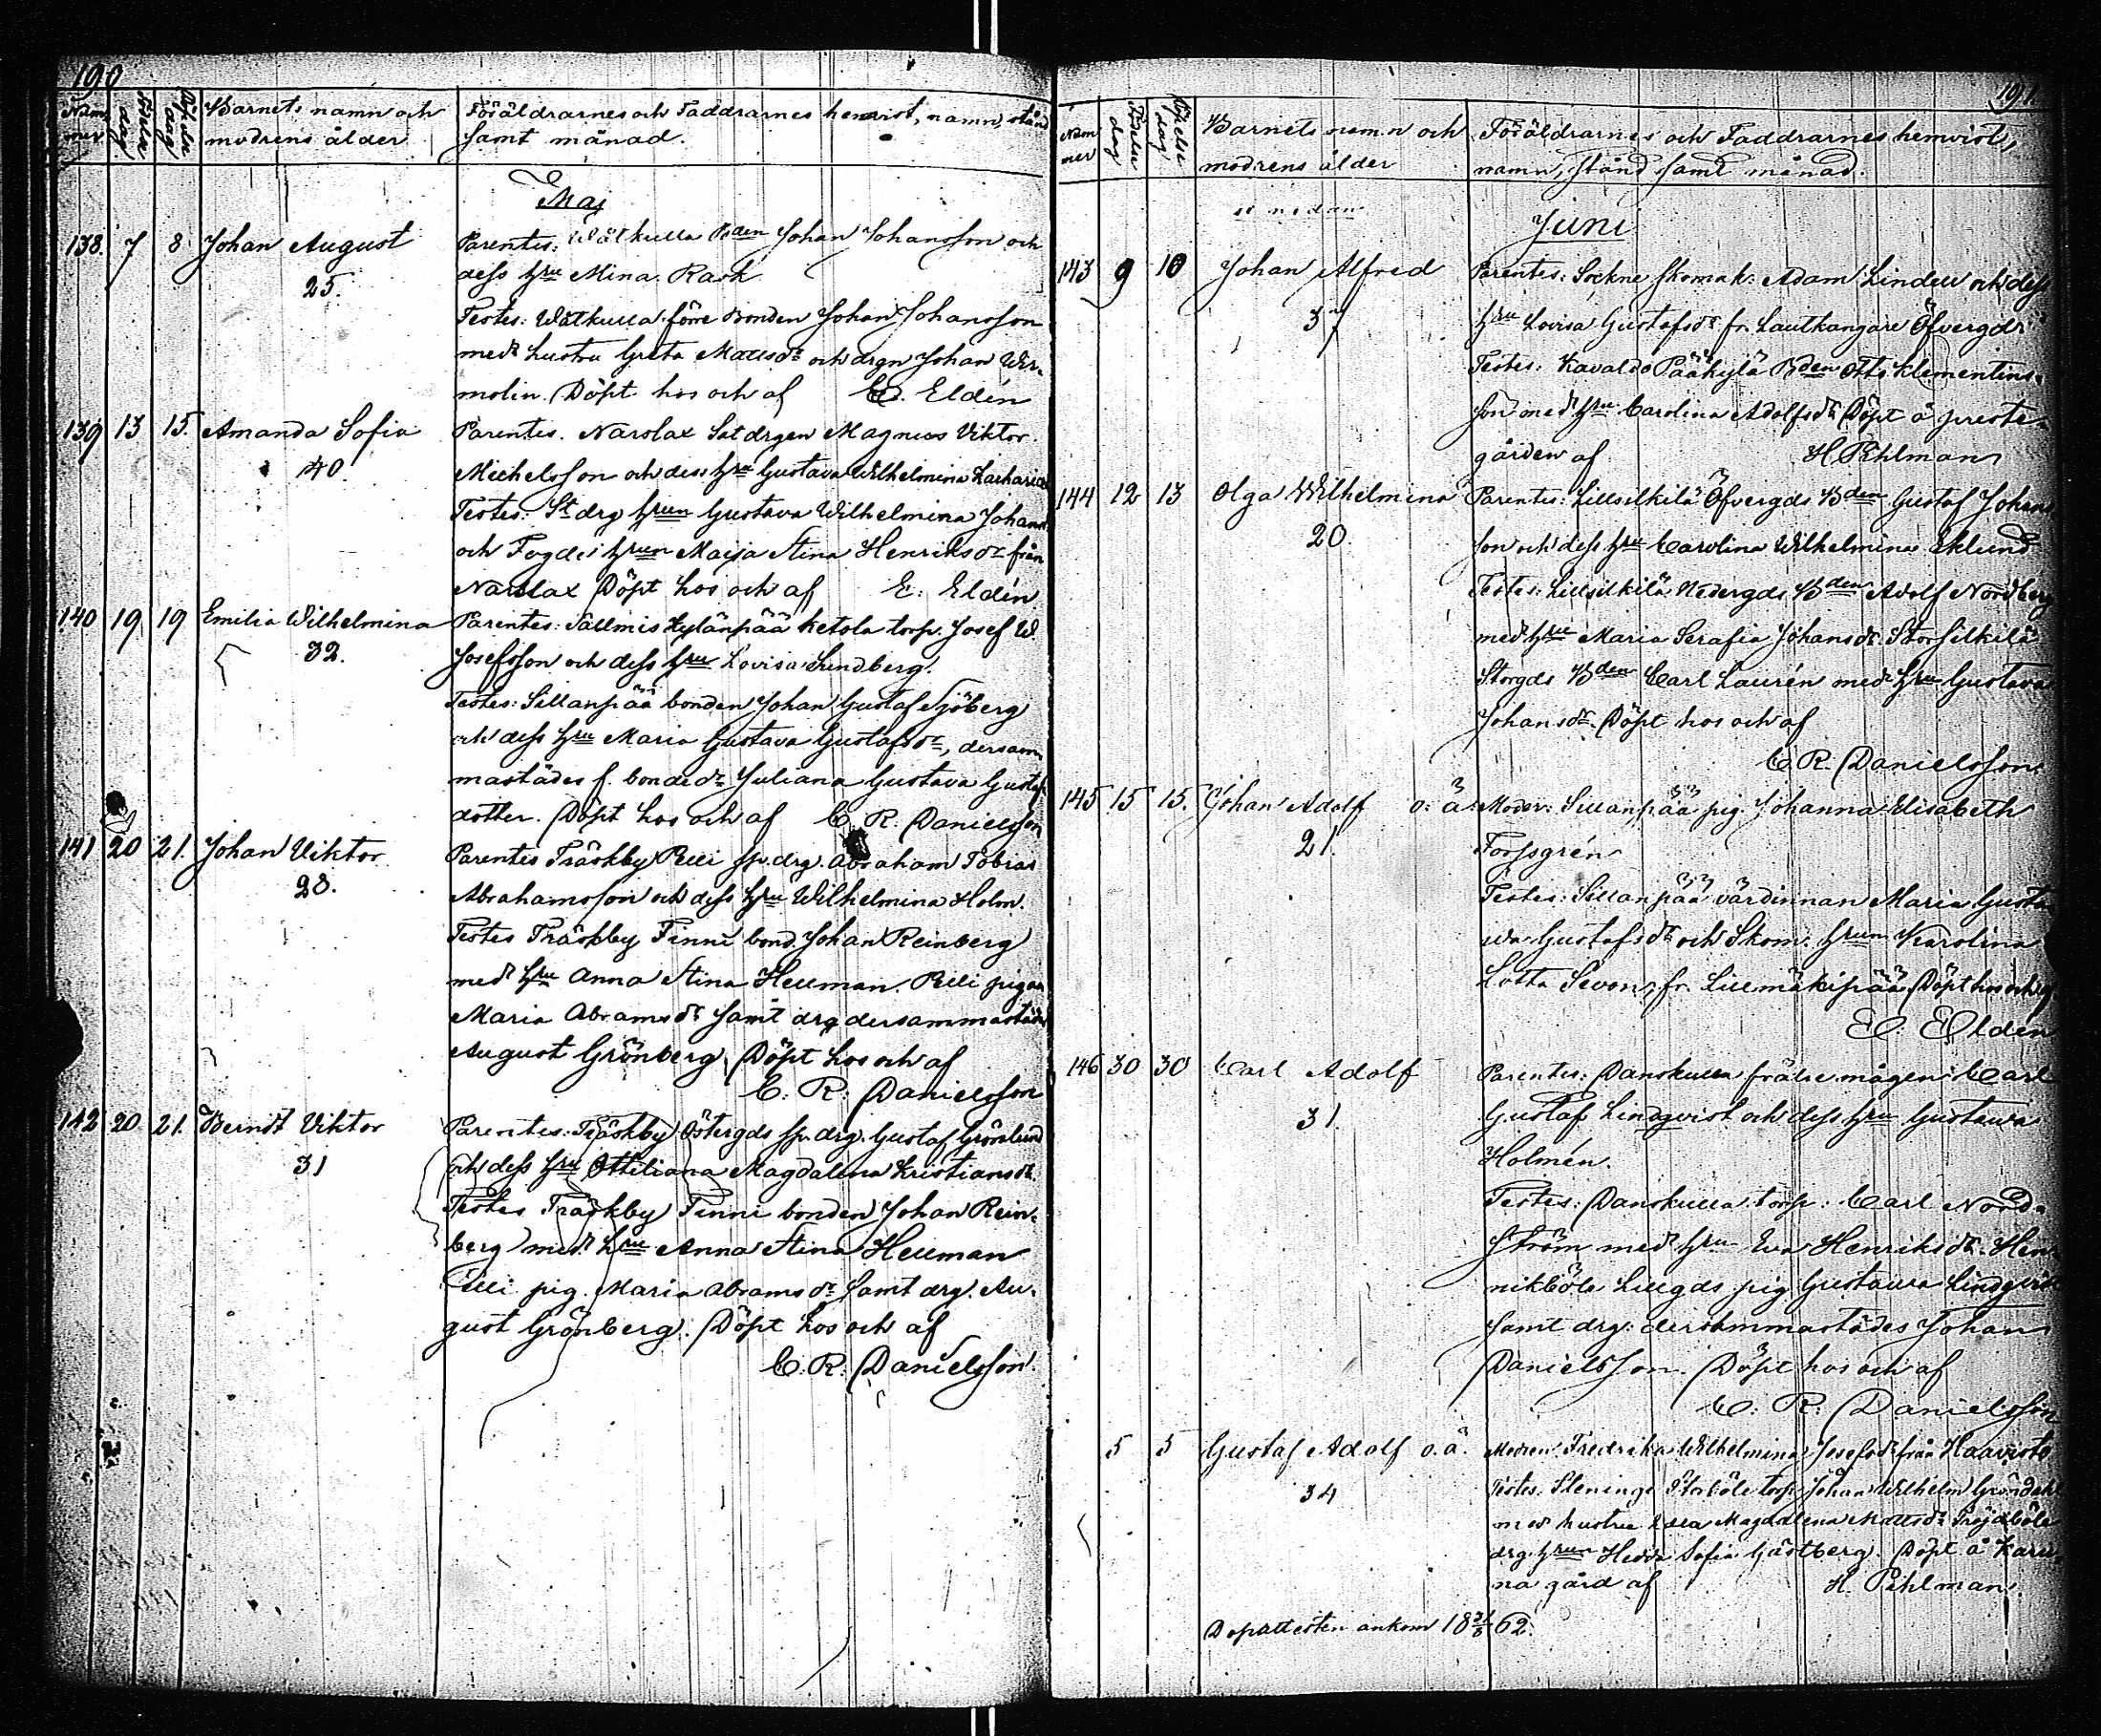 190
Nummer Födelse dag Döpelse dag Barnets namn och modrens ålder
Föräldrarnes och Faddrarnes hemvist, namn, stånd
samt månad.
Maj
138. 7 8 Johan August
25.
Parentes: Wätkulla Bden Johan Johansson och
dess hru Mina Rask
Testes: Wätkulla förre Bonden Johan Johansson
med hustru Greta Mattsdr och drgn Johan Wir-
molin. Döpt hos och af E. Eldén
139 13 15. Amanda Sofia
40
Parentes. Narslax Sat drgen Magnus Viktor
Michelsson och dess hru Gustava Wilhelmina Zacharia
Testes: St drg hrun Gustava Wilhelmina Johans
och Fogde hrun Maija Stina Henriksdr från
Narslax Döpt hos och af E. Eldén
140 19 19 Emilia Wilhelmina
32.
Parentes: Sällmis Kylänpää Ketola torp. Josef W.
Josefsson och dess hru Lovisa Lundberg.
Testes: Sillanpää bonden Johan Gustaf Sjöberg
och dess hru Maria Gustava Gustafsdr, dersam-
mastädes f. bondedr Juliana Gustava Gustaf
dotter. Döpt hos och af C. R. Danielsson
141 20 21. Johan Viktor
28.
Parentes Träskby Pelli sp. drg. Abraham Tobias
Abrahamsson och dess hru Wilhelmina Holm.
Testes Träskby Finni bond. Johan Reinberg
med hru Anna Stina Hellman. Pelli pigan
Maria Abramsdr samt drg dersammastädes
August Grönberg. Döpt hos och af
C. R. Danielsson
142 20. 21. Berndt Viktor
31
Parentes: Träskby Östergds sp. drg. Gustaf Grönlund
och dess hru Ottiliana Magdalena Kristiansdr.
Testes Träskby Finni bonden Johan Rein-
berg med hru Anna Stina Hellman
Pelli pig. Maria Abramsdr samt drg. Au-
gust Grönberg. Döpt hos och af
C. R. Danielsson.
191.
Nummer Födelse dag Döpelse dag Barnets namn och modrens ålder
Föräldrarnes och Faddrarnes hemvist,
namn, stånd samt månad.
se nedan
Juni
143 9 10 Johan Alfred
37
Parentes: Sockne skomak. Adam Lindell och dess
hru Lovisa Gustafsdr fr. Lautkangare Öfvergds
Testes: Kavaldo Pääkylä Bden Otto Klementins-
son med hru Carolina Adolfsdr Döpt å preste-
gården af H. Pihlman
144 12 13 Olga Wilhelmina
20.
Parentes: Lillsilkilä Öfvergds Bden Gustaf Johans
son och dess hru Carolina Wilhelmina Eklund
Testes: Lillsilkilä Nedergds Bden Adolf Nordberg
med hru Maria Serafia Johansdr. Storsilkilä
Storgds Bden Carl Laurén med hru Gustava
Johansdr. Döpt hos och af
C R. Danielsson.
145 15 15. Johan Adolf o. ä.
21.
Moder: Sillanpää pig. Johanna Elisabeth
Forssgrén
Testes: Sillanpää värdinnan Maria Gusta
va Gustafsdr och Skom. hrun Karolina
Lotta Sevon, fr. Lillmäkipää Döpt hos och af
E. Eldén
146 30 30 Carl Adolf
31.
Parentes: Danskulla frälse mågen Carl
Gustaf Lindqvist och dess hru Gustawa
Holmén.
Testes: Danskulla torp: Carl Nord-
ström med hru Eva Henriksdr. Hen
nikböle Lillgds pig Gustawa Lindqvist
samt drg: dersammastädes Johan
Danielsson. Döpt hos och af
C. R. Danielsson
5 5 Gustaf Adolf o. ä.
34
Modren Fredrika Wilhelmina Josefsdr från Haavisto
Testes: Steninge Storböle torp Johan Wilhelm Gröndahl
med hustru Magdalena Mattsdr Tröjböle
drg hrun Hedda Sofia Gästberg. Döpt å Karu-
na gård af H. Pihlman
Dopattesten ankom 18 62.